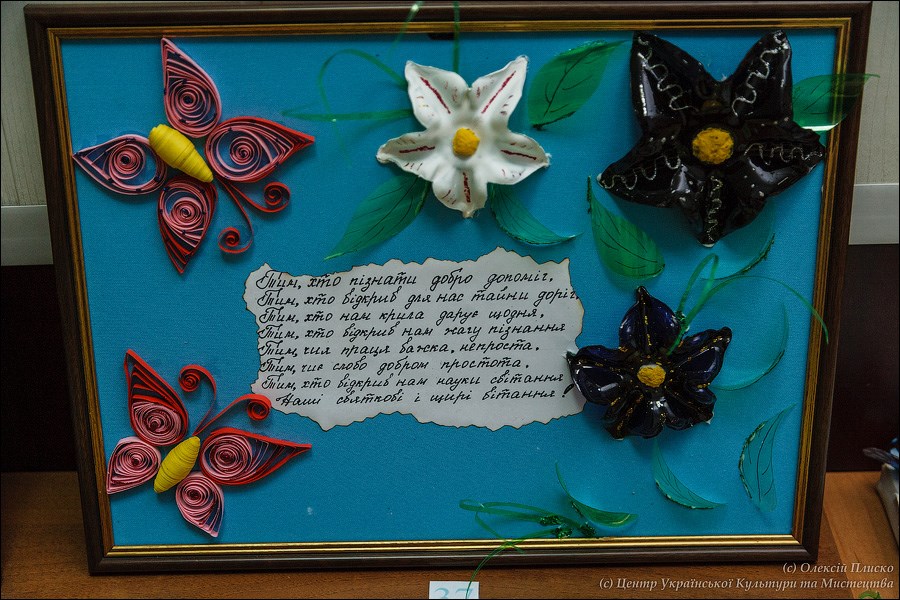 Тим, хто пізнати добро допоміг.
Тим, хто відкрив для нас тайни доріг,
Тим, хто нам крила дарує щодня,
Тим, хто відкрив нам жагу пізнання
Тим, чия праця важка, непроста.
Тим, чиє слово добром простота.
Тим, хто відкрив нам науки світання
Наші святкові і щирі вітання!
37
(c) Олексій Плиско
(c) Центр Української Культури та Мистецтва